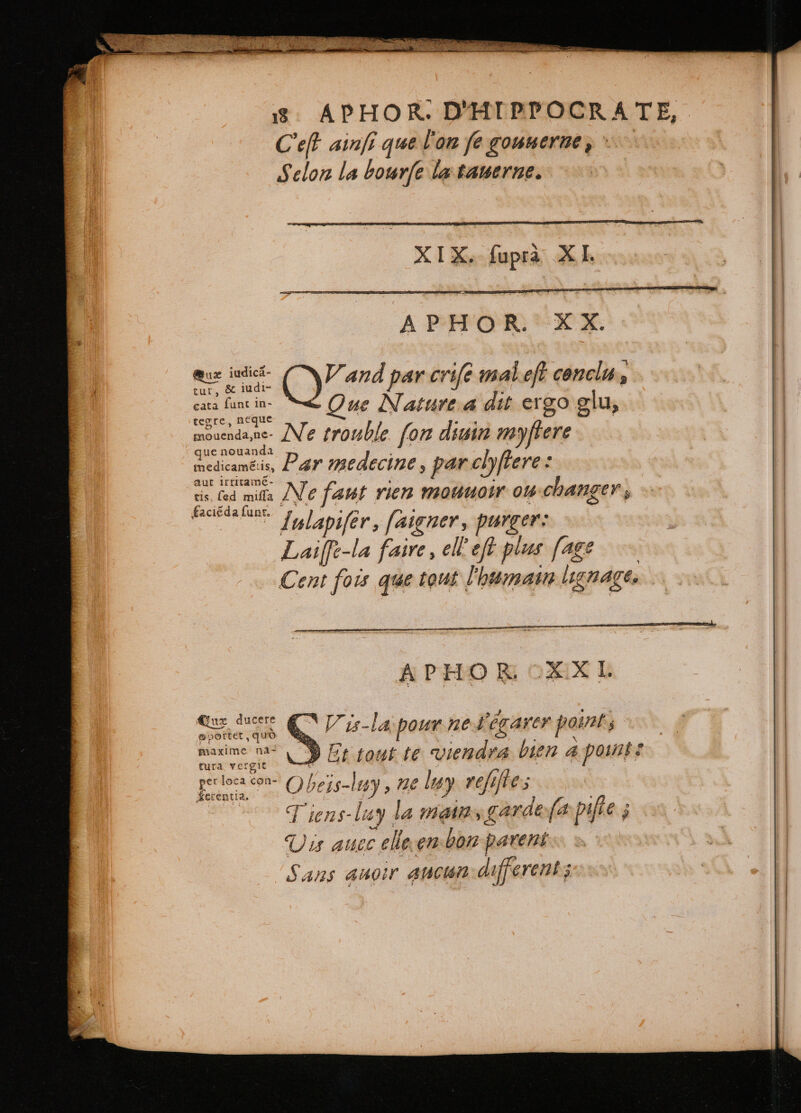 18 APHOR. D'HIPPOCRATE,
C'eſt ainſi que l'on ſe gouuerne,
Selon la bourſe la tauerne.
XIX. ſuprà XI.
APHOR. XX.
Quæ iudicã-
tur, & iudi-
cata ſunt in-
tegre, neque
mouenda, ne-
que nouanda
medicamẽtis,
aut irritamẽ-
tis, ſed miſſa
faciẽda ſunt.
QVand par criſe mal eſt conclu,
Que Nature a dit ergo glu,
Ne trouble ſon diuin myſtere
Par medecine, par clyſtere:
Ne faut rien mouuoir ou changer,
Iulapiſer, ſaigner, purger:
Laiſſe-la faire, ell' eſt plus ſage
Cent fois que tout l'humain lignage.
APHOR. XXI.
Quæ ducere
oportet, quò
maxime na-
tura vergit
per loca con-
ferentia.
SVis-la pour ne t'égarer point,
Et tout te viendra bien à point:
Obeïs-luy, ne luy reſiſte;
Tiens-luy la main, garde ſa piſte;
Vis auec elle en bon parent
Sans auoir aucun different;